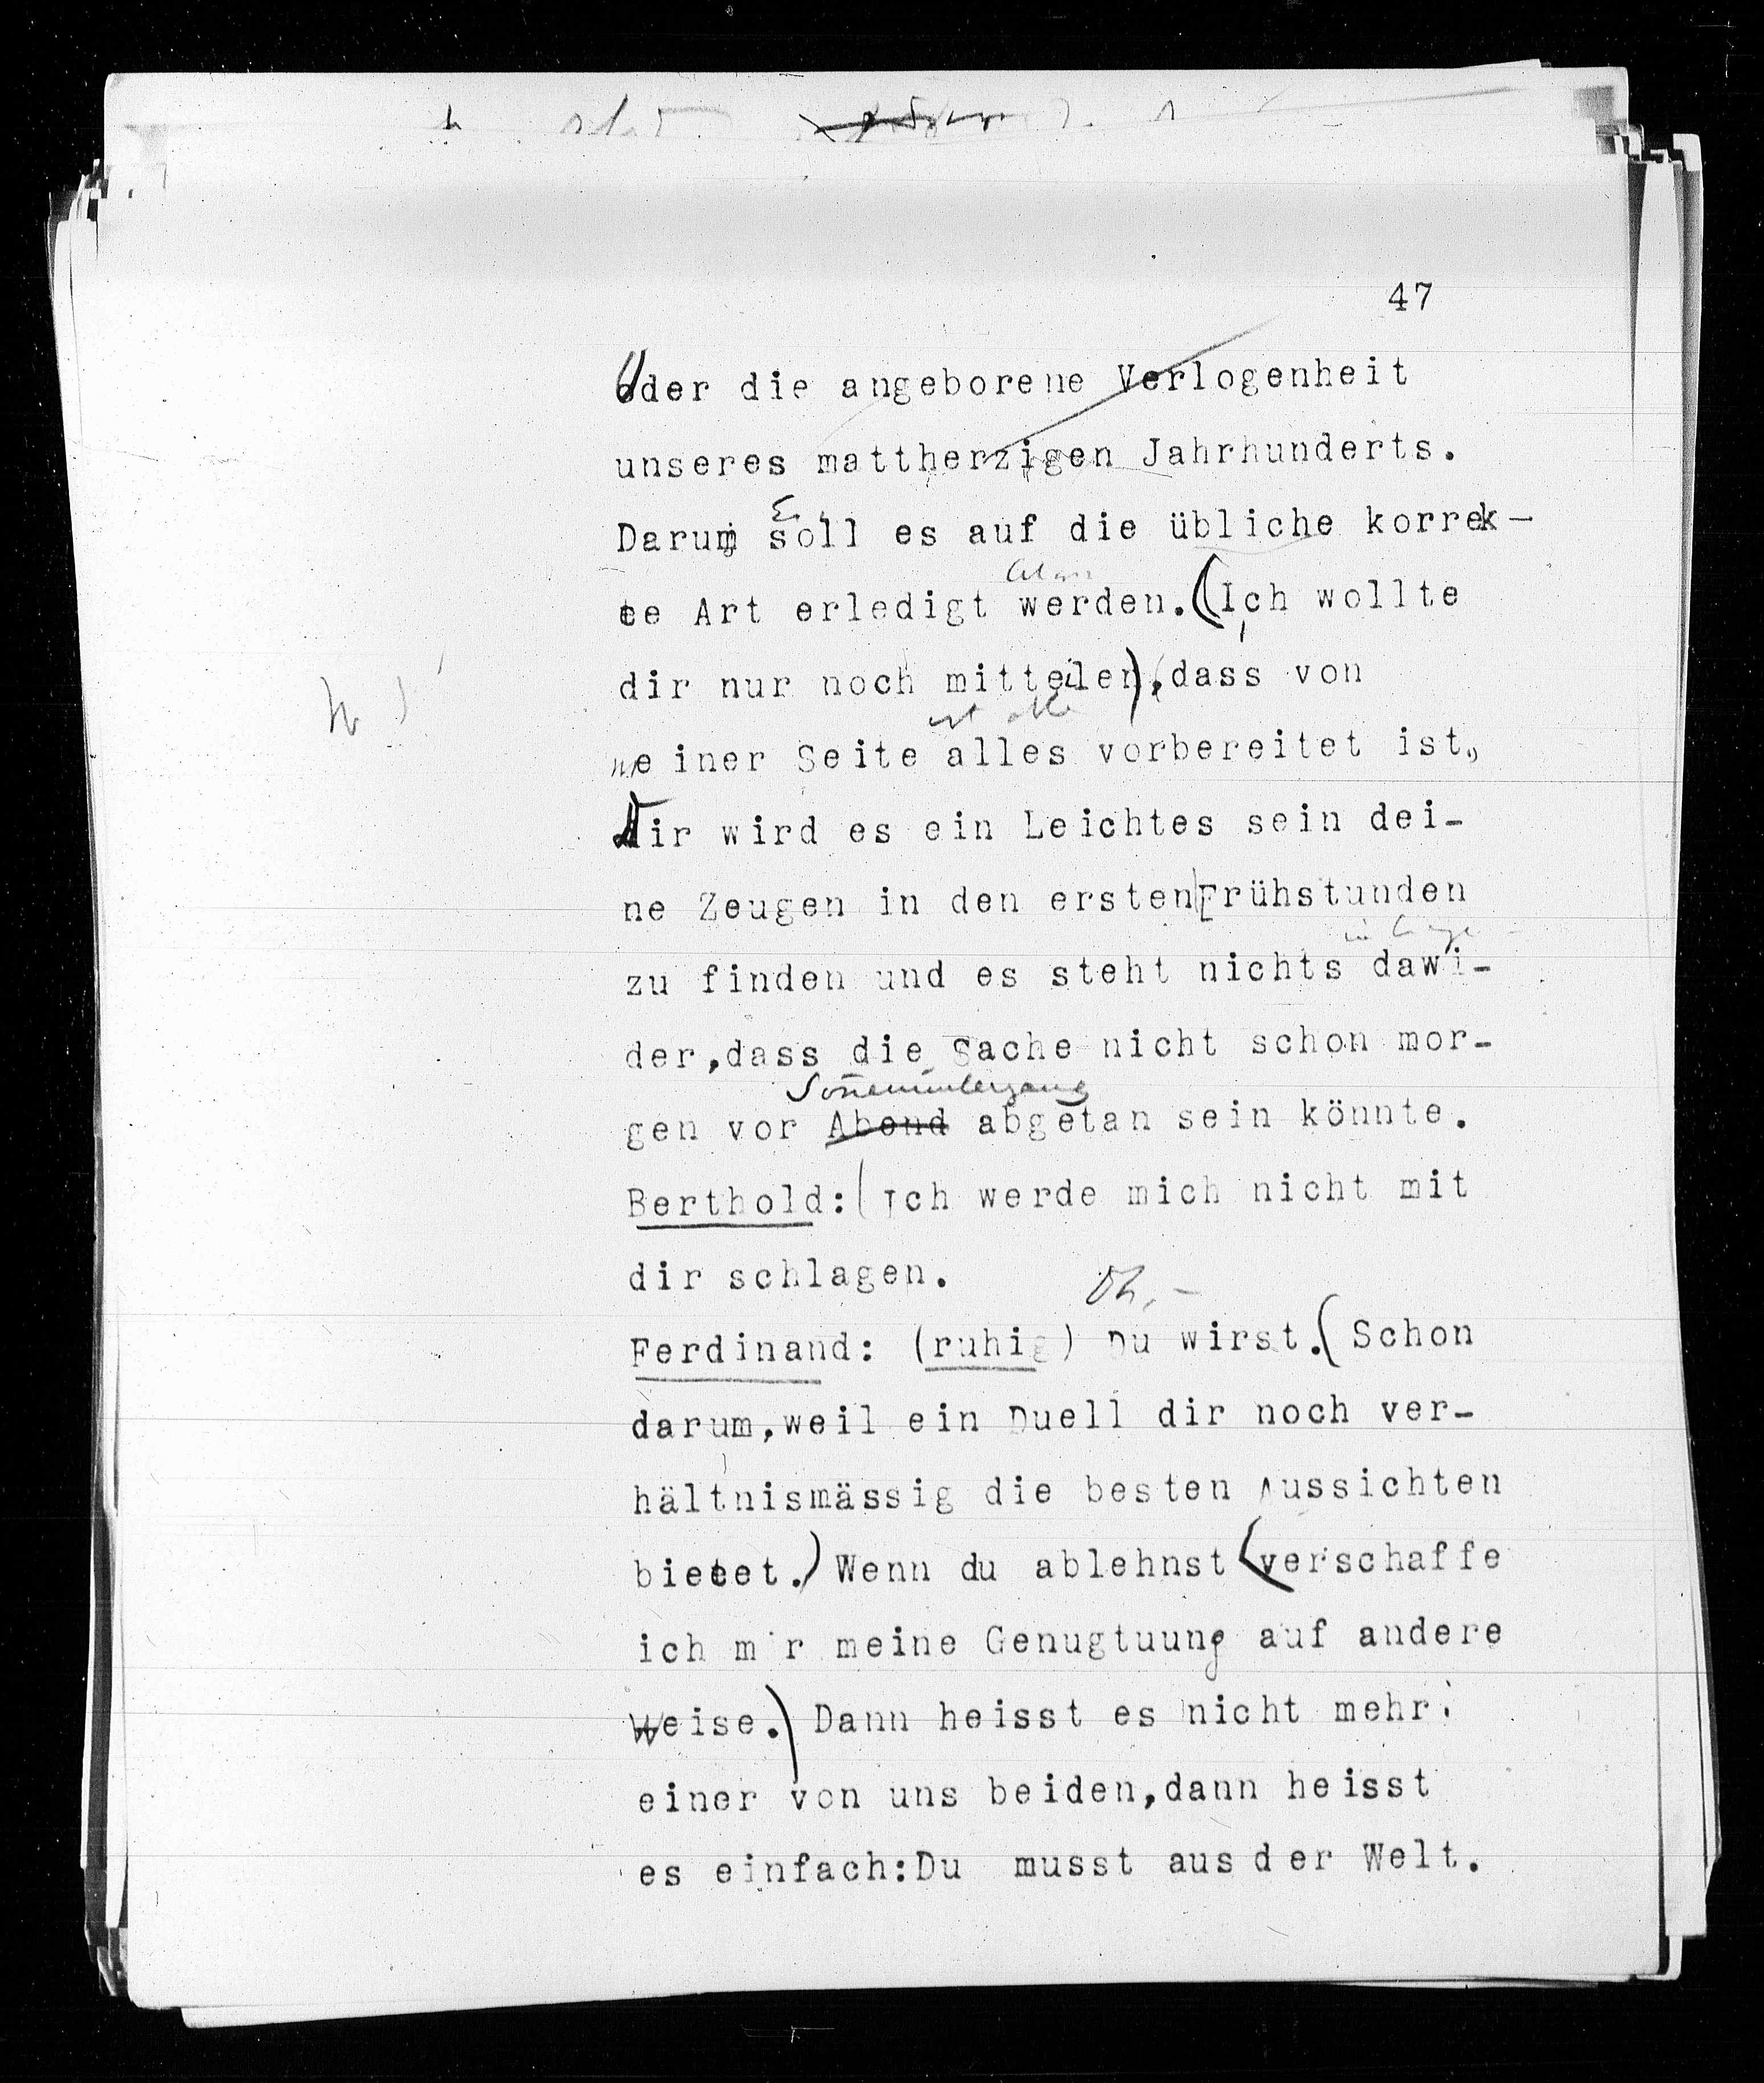 47
Oder die angeborene Verlogenheit
unseres mattherzigen Jahrhunderts.
Darum soll es auf die übliche korrek-
te Art erledigt werden. (Ich wollte
dir nur noch mitteilen), dass von
ist alles
meiner Seite alles vorbereitet ist,
Dir wird es ein Leichtes sein dei-
ne Zeugen in den ersten Frühstunden
zu finden und es steht nichts dawi-
der, dass die Sache nicht schon mor-
Sonnenuntergang
gen vor Abend abgetan sein könnte.
Berthold: (Ich werde mich nicht mit
dir schlagen.
Oh, -
Ferdinand: (ruhig) Du wirst. (Schon
darum, weil ein Duell dir noch ver-
hältnismässig die besten Aussichten
bietet.) Wenn du ablehnst (verschaffe
ich mir meine Genugtuung auf andere
Weise.) Dann heisst es nicht mehr:
einer von uns beiden, dann heisst
es einfach: Du musst aus der Welt.